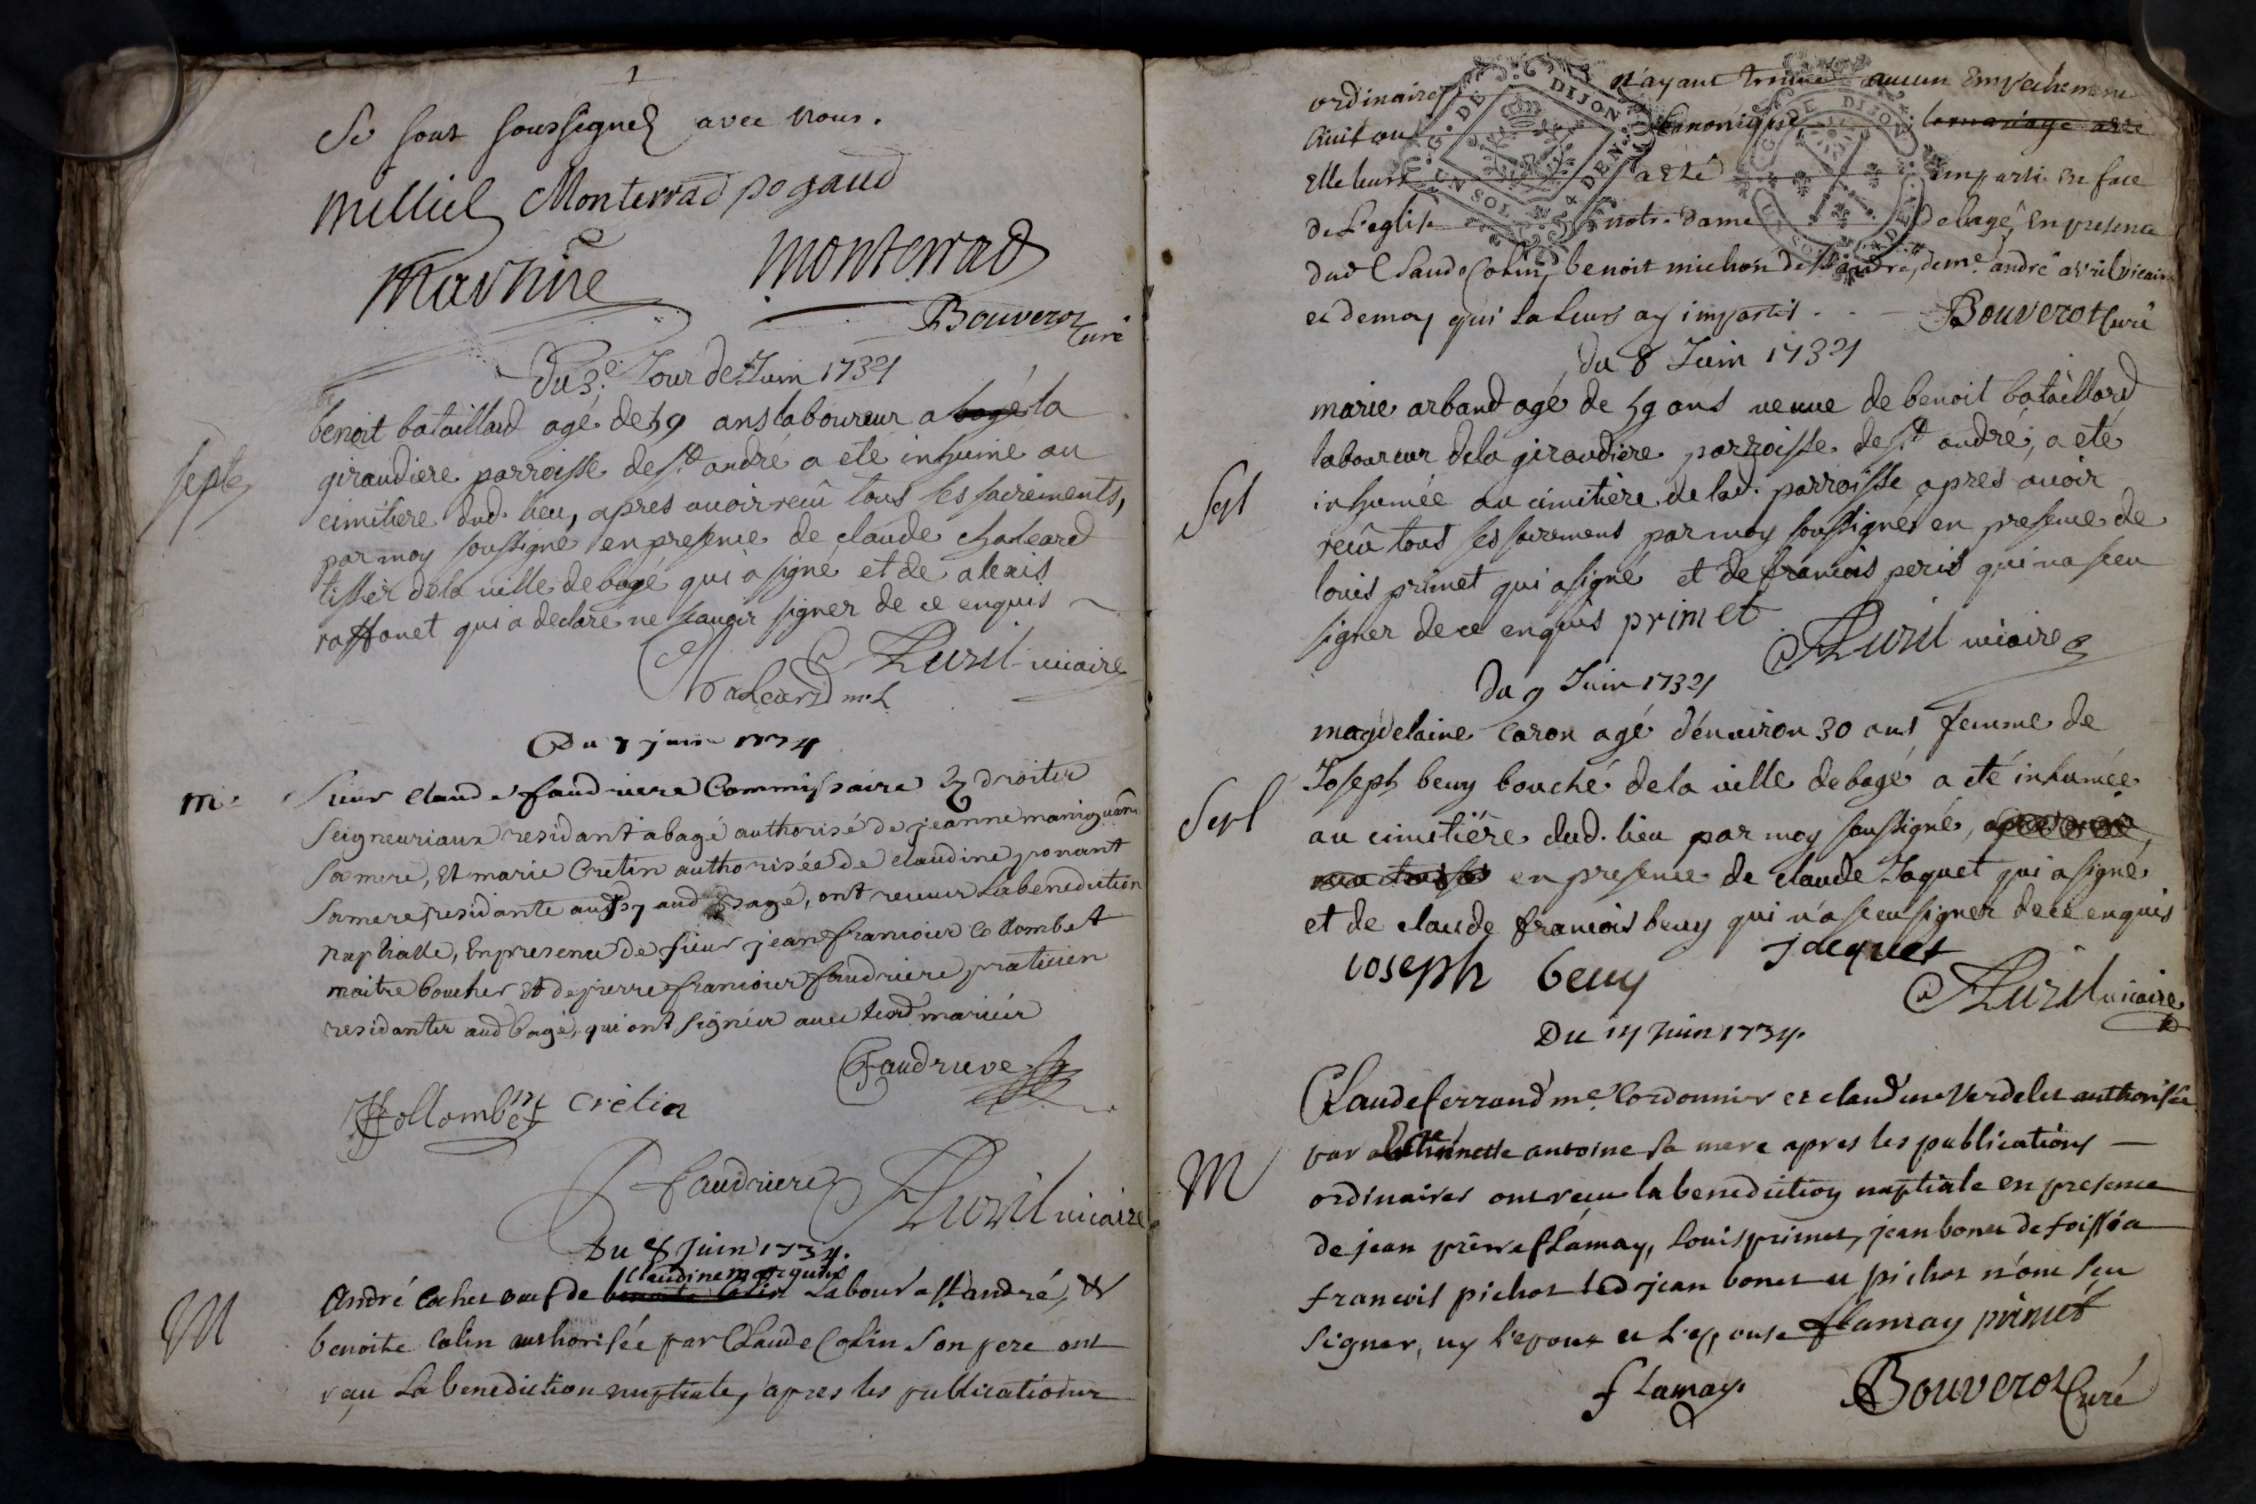 1
Se sont soussignes avec nous.
milliet Monterrad pogaud
marhine monterrad
Bouverot
Curé
Du 3e Jour de Juin 1734
benoit bataillard agé de 59 ans laboureur a la
giraudiere parroisse de st andré a eté inhumé au
Septe
cimitiere dud. lieu, apres avoir reçû tous ses sacrements,
par moy soussigné en presence de claude chaleard
tissier de la ville de bagé qui a signé et de alexis
raffanet qui a declaré ne scavoir signer de ce enquis
Avril vicaire
chaleard
Du 7 juin 1734
m
Sieur claude faudriere Commissaire Es droites
Seigneuriaux residant a bagé authorisé de jeanne maniquant
Sa mere, Et marie Cretin authorisée de claudine ponant
Sa mere residante aussy aud bagé, ont receues La benediction
Nuptialle, En presence de sieur jean francoies Collombet
maitre boucher Et de pierre francoies faudriere praticien
residantes aud bagé, qui ont signées avec lesd mariées
faudrieve
Collombet Crétin
faudriere Avril vicaire
Du 8 Juin 1734.
claudine
M
André Cochet veuf de benoite Colin Labour a st andré, et
benoite Colin authorisée par Claude Colin Son pere ont
reçu La benediction nuptiale, apres les publications
ordinaires n'ayant trouvé aucun Empechement
Civil ou Canonique le mariage a eté
Elle leurs a eté impartie En face
de L'eglise notre Dame de bagé, En presence
dud Claude Colin, benoit michon de st andré, de me andré avril vicaire
et de moy qui La Leurs ay impartis . . — Bouverot Curé
du 8 Juin 1734
marie arband agé de 59 ans veuve de benoit bataillard
laboureur de la giraudiere parroisse de st andré, a eté
Sept
inhumée au cimitiere de lad. parroisse apres avoir
reçû tous ses sacremens par moy soussigné en presence de
louis primet qui a signé et de francois peris qui na sceu
signer de ce enquis primet
Avril vicaire
du 9 Juin 1734
magdelaine Caron agé d'environ 30 ans femme de
Joseph beuy bouché de la ville de bagé a eté inhumée
Sept
au cimitière dud. lieu par moy soussigné,
en presence de claude Jaquet qui a signé
et de claude francois beuy qui n'a sceu signer de ce enquis
joseph beuy jacquet
Avril vicaire
Du 14 Juin 1734.
Claude ferrand me Cordonnier et claudine Verdelet authorisée
M
par antoine sa mere apres les publications —
ordinaires ont reçu la benediction nuptiale en presence
de jean pierre flamay, Louis primet, jean bonet de foissia
francois pichot Led jean bonet et pichot n'ont sçu
signer, ny l'epoux et L'epouse flamay primet
flamay Bouverot Curé
G. DE DIJON
UN SOL
DEN.
G. DE DIJON
UN SOL
DEN.